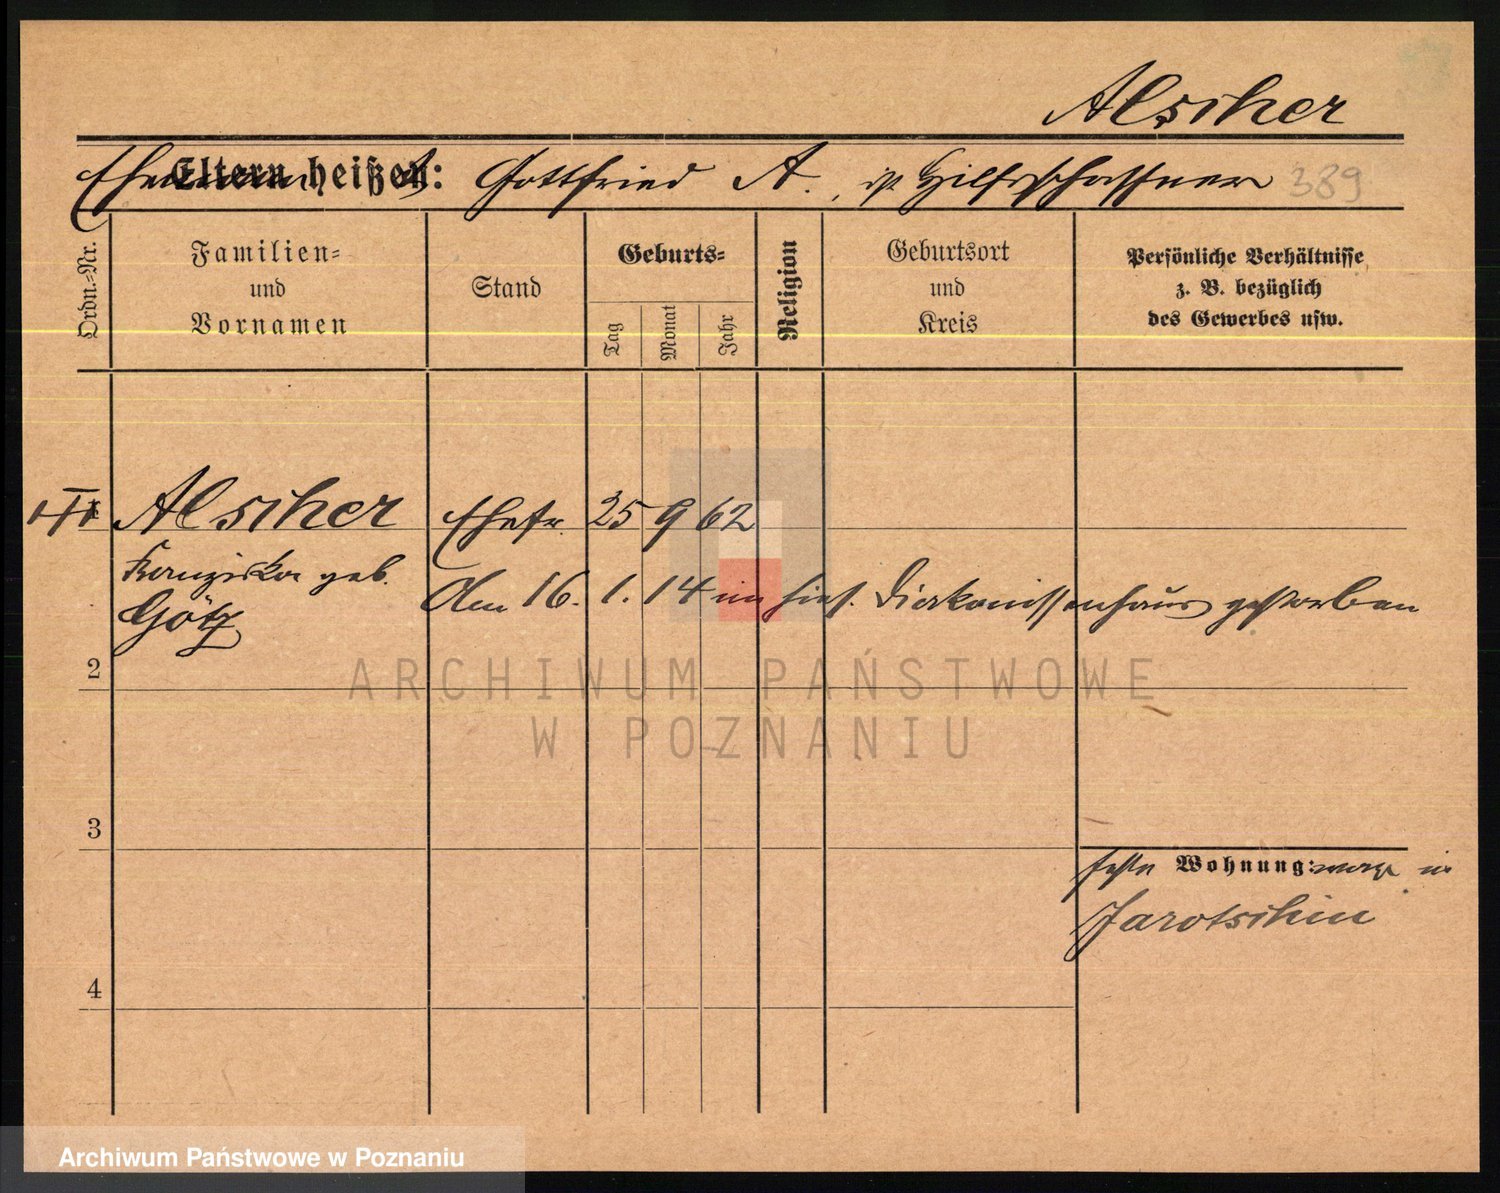 Alscher
Ehemann heißt: Gottfried A., ist Hilfsschaffner 389
Eltern heißen:
Ordn.-Nr.
Familien-
und
Vornamen
Stand
Geburts-
Tag
Monat
Jahr
Religion
Geburtsort
und
Kreis
Persönliche Verhältnisse
z. B. bezüglich
des Gewerbes usw.
1 Alscher Ehefr. 25 9 62
Franziska geb.
Götz
Am 16. 1. 14 im hies. Diakonissenhaus gestorben
2
ARCHIWUM PAŃSTWOWE
W POZNANIU
3
feste Wohnung: in
Jarotschin
4
Archiwum Państwowe w Poznaniu